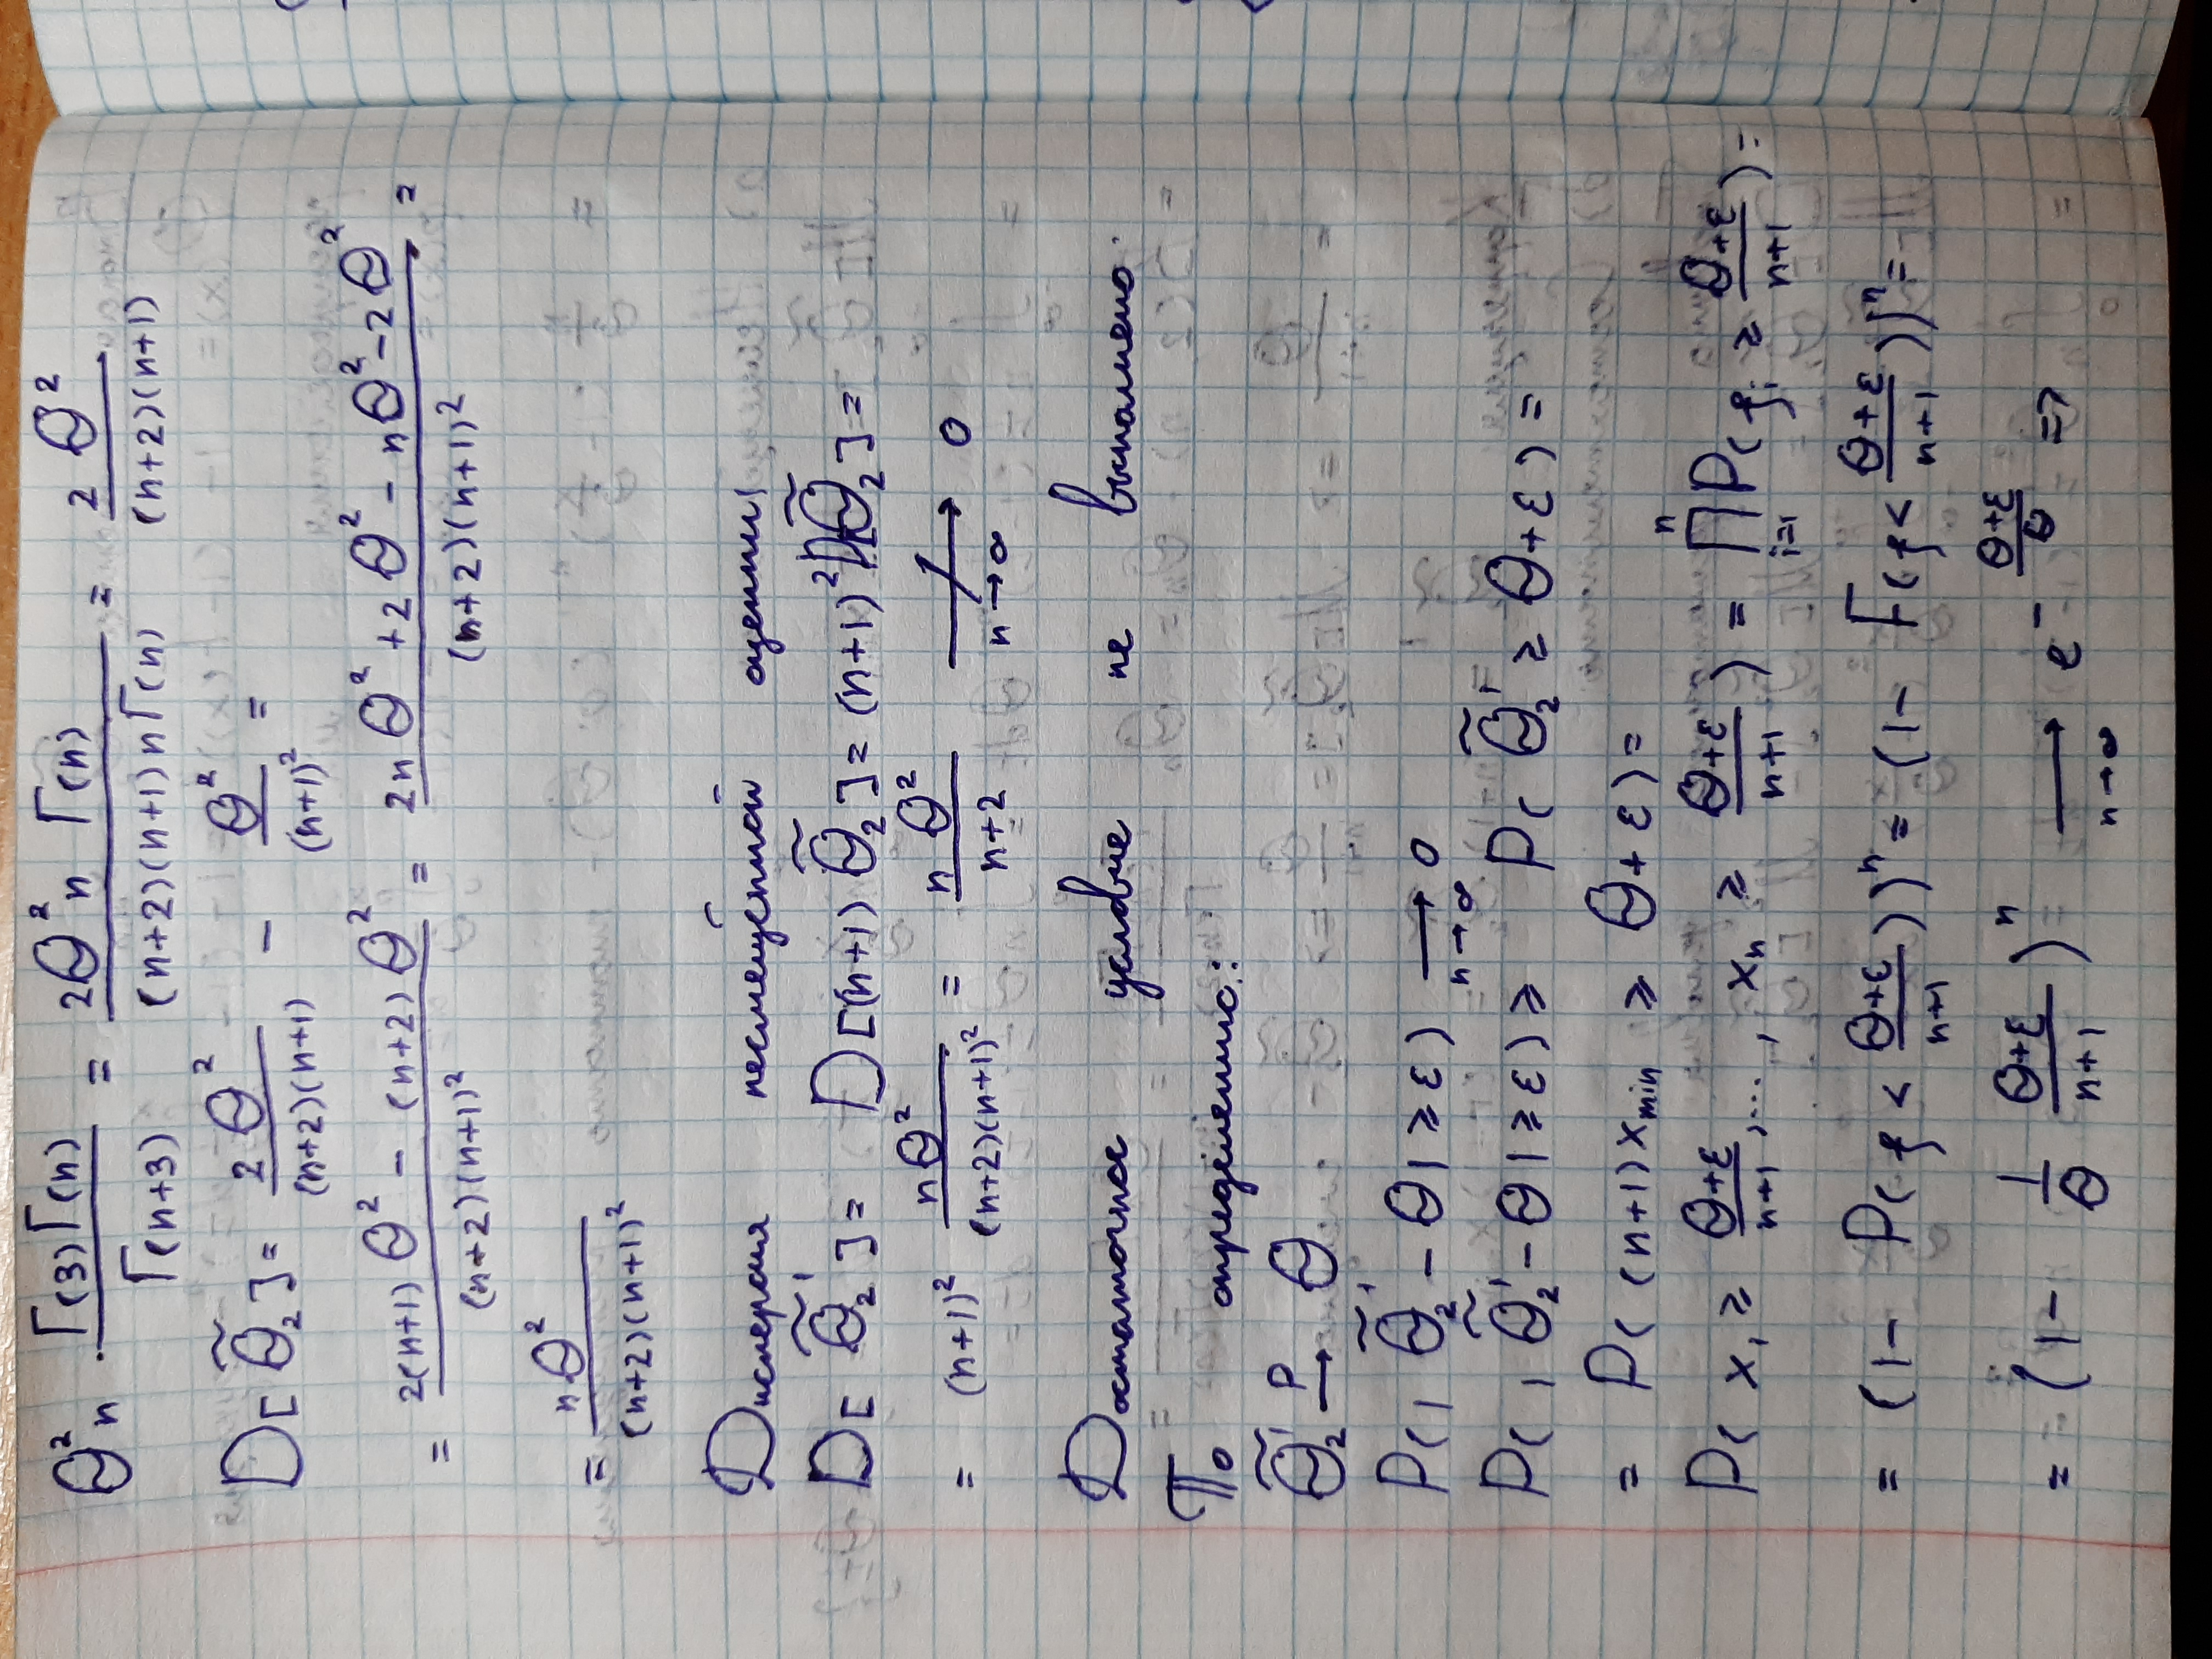 Θ² n · Γ(3)Γ(n) / Γ(n+3) = 2Θ² n Γ(n) / (n+2)(n+1)nΓ(n) = 2Θ² / (n+2)(n+1)
D[Θ̃₂] = 2Θ² / (n+2)(n+1) − Θ² / (n+1)² =
= 2(n+1)Θ² − (n+2)Θ² / (n+2)(n+1)² = 2nΘ² + 2Θ² − nΘ² − 2Θ² / (n+2)(n+1)² =
= nΘ² / (n+2)(n+1)²
Дисперсия несмещённой оценки
D[Θ̃₂'] = D[(n+1)Θ̃₂] = (n+1)² D[Θ̃₂] =
= (n+1)² nΘ² / (n+2)(n+1)² = nΘ² / n+2 ↛ n→∞ 0
Достаточное условие не выполнено.
По определению:
Θ̃₂' →ᴾ Θ
P(|Θ̃₂' − Θ| ≥ ε) → n→∞ 0
P(|Θ̃₂' − Θ| ≥ ε) ≥ P(Θ̃₂' ≥ Θ+ε) =
= P((n+1)x_min ≥ Θ+ε) =
P(x₁ ≥ Θ+ε / n+1, ..., xₙ ≥ Θ+ε / n+1) = ∏ⁿ i=1 P(ξᵢ ≥ Θ+ε / n+1) =
= (1 − P(ξ < Θ+ε / n+1))ⁿ = (1 − F(ξ < Θ+ε / n+1))ⁿ =
= (1 − 1/Θ Θ+ε / n+1)ⁿ → n→∞ e^(− Θ+ε / Θ) =>